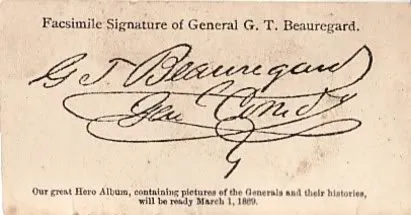 Facsimile Signature of General G. T. Beauregard.
G T. Beauregard
Genl Comdg
Our great Hero Album, containing pictures of the Generals and their histories,
will be ready March 1, 1869.